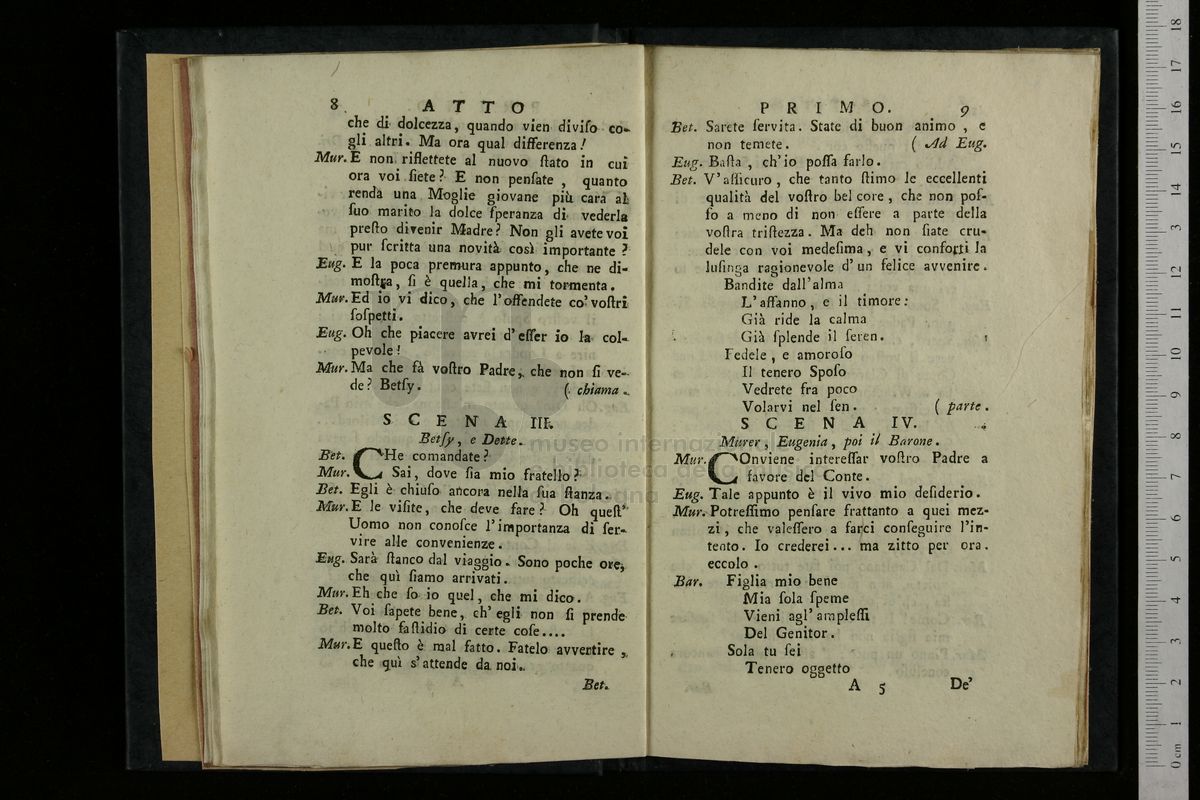 8 ATTO
che di dolcezza, quando vien diviſo co-
gli altri. Ma ora qual differenza!
Mur. E non riflettete al nuovo ſtato in cui
ora voi ſiete? E non penſate, quanto
renda una Moglie giovane più cara al
ſuo marito la dolce ſperanza di vederla
preſto divenir Madre? Non gli avete voi
pur ſcritta una novità così importante?
Eug. E la poca premura appunto, che ne di-
moſtra, ſi è quella, che mi tormenta.
Mur. Ed io vi dico, che l'offendete co' voſtri
ſoſpetti.
Eug. Oh che piacere avrei d'eſſer io la col-
pevole!
Mur. Ma che fà voſtro Padre, che non ſi ve-
de? Betſy. ( chiama.
SCENA III.
Betſy, e Dette.
Bet. CHe comandate?
Mur. Sai, dove ſia mio fratello?
Bet. Egli è chiuſo ancora nella ſua ſtanza.
Mur. E le viſite, che deve fare? Oh queſt'
Uomo non conoſce l'importanza di ſer-
vire alle convenienze.
Eug. Sarà ſtanco dal viaggio. Sono poche ore,
che quì ſiamo arrivati.
Mur. Eh che ſo io quel, che mi dico.
Bet. Voi ſapete bene, ch'egli non ſi prende
molto faſtidio di certe coſe....
Mur. E queſto è mal fatto. Fatelo avvertire,
che quì s'attende da noi.
Bet.
PRIMO. 9
Bet. Sarete ſervita. State di buon animo, e
non temete. ( Ad Eug.
Eug. Baſta, ch'io poſſa farlo.
Bet. V'aſſicuro, che tanto ſtimo le eccellenti
qualità del voſtro bel core, che non poſ-
ſo a meno di non eſſere a parte della
voſtra triſtezza. Ma deh non ſiate cru-
dele con voi medeſima, e vi conforti la
luſinga ragionevole d'un felice avvenire.
Bandite dall'alma
L'affanno, e il timore:
Già ride la calma
Già ſplende il ſeren.
Fedele, e amoroſo
Il tenero Spoſo
Vedrete fra poco
Volarvi nel ſen. ( parte.
SCENA IV.
Murer, Eugenia, poi il Barone.
Mur. COnviene intereſſar voſtro Padre a
favore del Conte.
Eug. Tale appunto è il vivo mio deſiderio.
Mur. Potreſſimo penſare frattanto a quei mez-
zi, che valeſſero a farci conſeguire l'in-
tento. Io crederei... ma zitto per ora.
eccolo.
Bar. Figlia mio bene
Mia ſola ſpeme
Vieni agl'ampleſſi
Del Genitor.
Sola tu ſei
Tenero oggetto
A 5 De'
museo internazionale
e biblioteca della musica
di bologna
0 cm 1 2 3 4 5 6 7 8 9 10 11 12 13 14 15 16 17 18